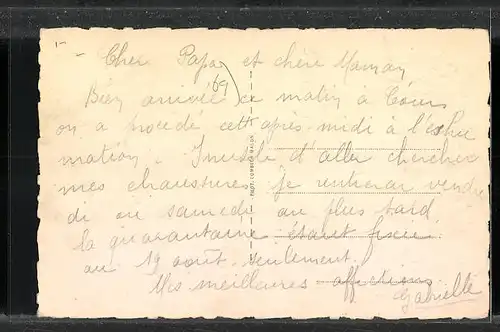 1-
- Cher Papa et chère Maman
69
Bien arrivée ce matin à Tours
on a procédé cette après-midi à l'exhu
mation. Inutile d'aller chercher
mes chaussures. Je rentrerai vendre
di ou samedi au plus tard,
la quarantaine étant fixée
au 19 août seulement.
Mes meilleures affections
Gabrielle